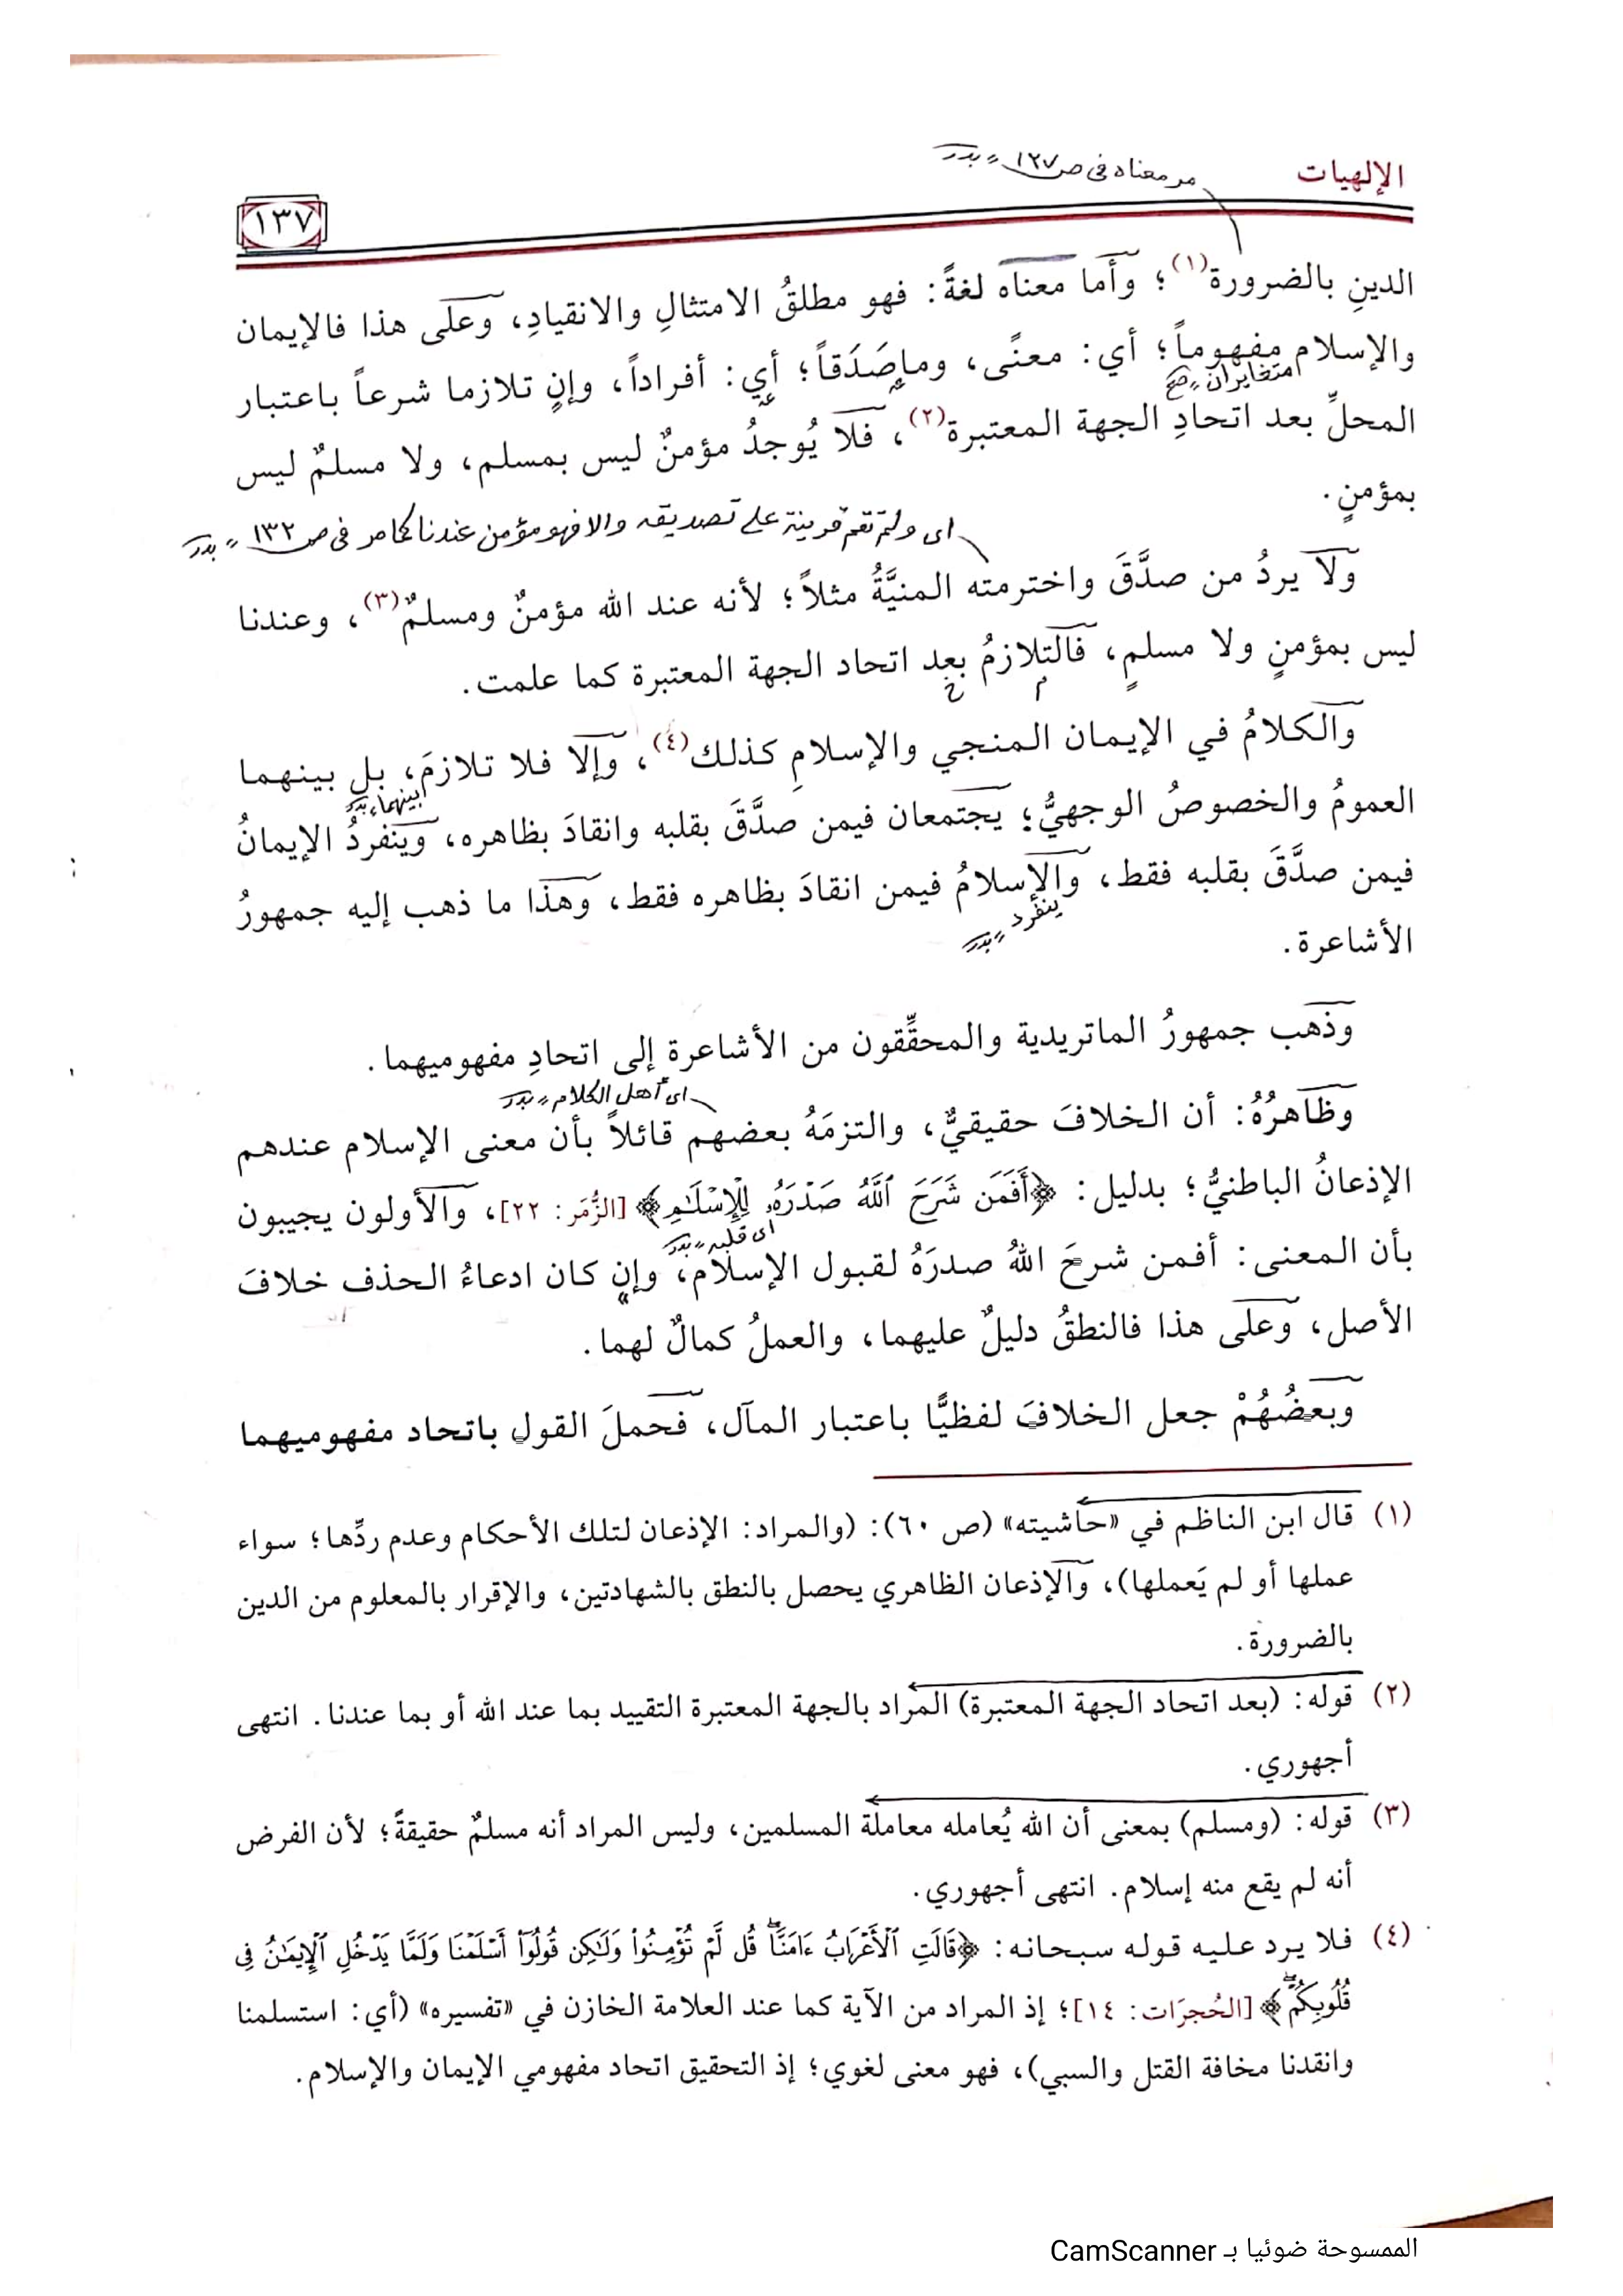 مر معناه فى ص ١٢٧ بدر
الإلهيات
١٣٧
الدينِ بالضرورة(١)؛ وأما معناه لغةً: فهو مطلقُ الامتثالِ والانقيادِ، وعلى هذا فالإيمان
والإسلام مفهوماً؛ أي: معنًى، وماصَدَقاً؛ أي: أفراداً، وإن تلازما شرعاً باعتبار
متغايران صح
المحلِّ بعد اتحادِ الجهة المعتبرة(٢)، فلا يُوجدُ مؤمنٌ ليس بمسلم، ولا مسلمٌ ليس
بمؤمنٍ.
اى ولم تقم قرينة على تصديقه والا فهو مؤمن عندنا كما مر فى ص ١٣٢ بدر
ولا يردُ من صدَّقَ واخترمته المنيَّةُ مثلاً؛ لأنه عند الله مؤمنٌ ومسلمٌ(٣)، وعندنا
ليس بمؤمنٍ ولا مسلمٍ، فالتلازمُ بعد اتحاد الجهة المعتبرة كما علمت.
م خ
والكلامُ في الإيمان المنجي والإسلامِ كذلك(٤)، وإلا فلا تلازمَ، بل بينهما
العمومُ والخصوصُ الوجهيُّ؛ يجتمعان فيمن صدَّقَ بقلبه وانقادَ بظاهره، وينفردُ الإيمانُ
بينهما بدر
فيمن صدَّقَ بقلبه فقط، والإسلامُ فيمن انقادَ بظاهره فقط، وهذا ما ذهب إليه جمهورُ
ينفرد بدر
الأشاعرة.
وذهب جمهورُ الماتريدية والمحقِّقون من الأشاعرة إلى اتحادِ مفهوميهما.
اى أهل الكلام بدر
وظاهرُهُ: أن الخلافَ حقيقيٌّ، والتزمَهُ بعضهم قائلاً بأن معنى الإسلام عندهم
الإذعانُ الباطنيُّ؛ بدليل: ﴿أَفَمَن شَرَحَ ٱللَّهُ صَدْرَهُۥ لِلْإِسْلَٰمِ﴾ [الزُّمَر: ٢٢]، والأولون يجيبون
اى قلبه بدر
بأن المعنى: أفمن شرحَ اللهُ صدرَهُ لقبول الإسلام، وإن كان ادعاءُ الحذف خلافَ
الأصل، وعلى هذا فالنطقُ دليلٌ عليهما، والعملُ كمالٌ لهما.
وبعضُهُمْ جعل الخلافَ لفظيًّا باعتبار المآل، فحملَ القول باتحاد مفهوميهما
(١) قال ابن الناظم في «حاشيته» (ص ٦٠): (والمراد: الإذعان لتلك الأحكام وعدم ردِّها؛ سواء
عملها أو لم يَعملها)، والإذعان الظاهري يحصل بالنطق بالشهادتين، والإقرار بالمعلوم من الدين
بالضرورة.
(٢) قوله: (بعد اتحاد الجهة المعتبرة) المراد بالجهة المعتبرة التقييد بما عند الله أو بما عندنا. انتهى
أجهوري.
(٣) قوله: (ومسلم) بمعنى أن الله يُعامله معاملة المسلمين، وليس المراد أنه مسلمٌ حقيقةً؛ لأن الفرض
أنه لم يقع منه إسلام. انتهى أجهوري.
(٤) فلا يرد عليه قوله سبحانه: ﴿قَالَتِ ٱلْأَعْرَابُ ءَامَنَّا ۖ قُل لَّمْ تُؤْمِنُوا۟ وَلَٰكِن قُولُوٓا۟ أَسْلَمْنَا وَلَمَّا يَدْخُلِ ٱلْإِيمَٰنُ فِى
قُلُوبِكُمْ ۖ﴾ [الحُجرَات: ١٤]؛ إذ المراد من الآية كما عند العلامة الخازن في «تفسيره» (أي: استسلمنا
وانقدنا مخافة القتل والسبي)، فهو معنى لغوي؛ إذ التحقيق اتحاد مفهومي الإيمان والإسلام.
الممسوحة ضوئيا بـ CamScanner